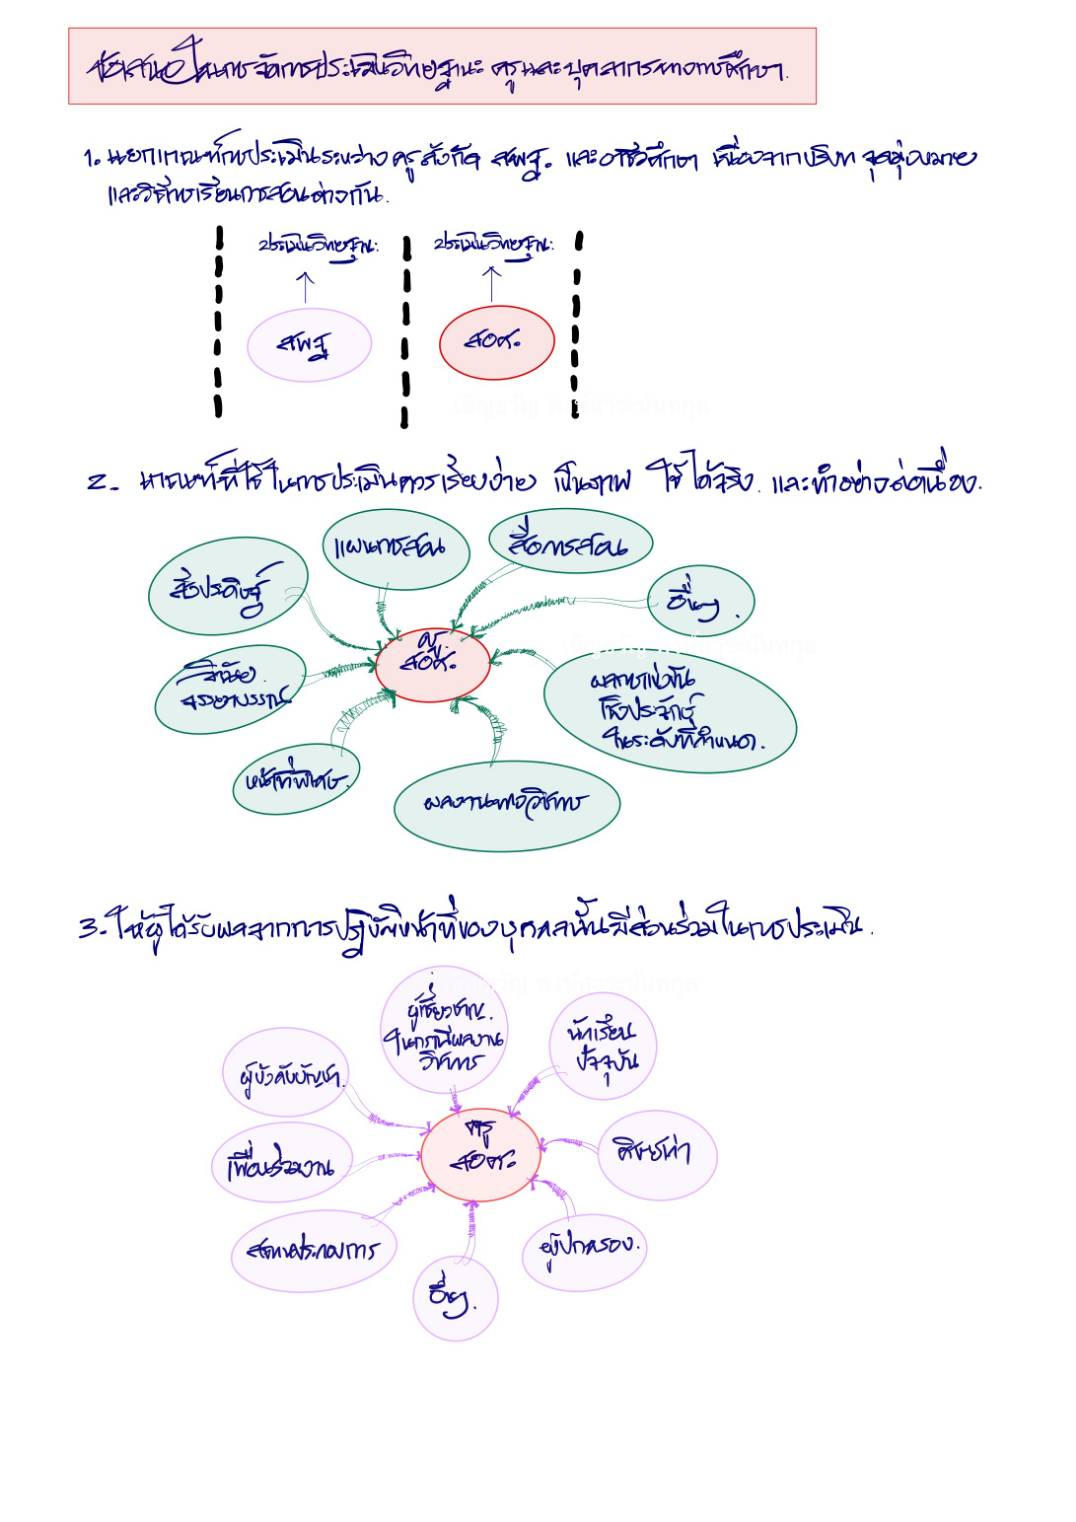 ข้อเสนอในการจัดการประเมินวิทยฐานะ ครูและบุคลากรทางการศึกษา.
1. แยกเกณฑ์การประเมินระหว่าง ครู สังกัด สพฐ. และอาชีวศึกษา เนื่องจากบริบท จุดมุ่งหมาย
และวิธีการเรียนการสอนต่างกัน.
ประเมินวิทยฐานะ
ประเมินวิทยฐานะ
สพฐ
สอศ.
2. เกณฑ์ที่ใช้ในการประเมินควรเรียบง่าย เป็นภาพ ใช้ได้จริง. และทำอย่างต่อเนื่อง.
แผนการสอน
สื่อการสอน
สิ่งประดิษฐ์
อื่นๆ.
ครู.
สอศ.
วินัย.
จรรยาบรรณ
ผลการแข่งขัน
เชิงประจักษ์
ในระดับที่กำหนด.
หน้าที่พิเศษ.
ผลงานทางวิชาการ
3. ให้ผู้ได้รับผลจากการปฏิบัติหน้าที่ของบุคคลนั้นมีส่วนร่วมในการประเมิน.
ผู้เชี่ยวชาญ.
ในกรณีผลงาน
วิชาการ
นักเรียน
ปัจจุบัน
ผู้บังคับบัญชา.
ครู
สอศ.
ศิษย์เก่า
เพื่อนร่วมงาน
สถานประกอบการ
ผู้ปกครอง.
อื่นๆ.